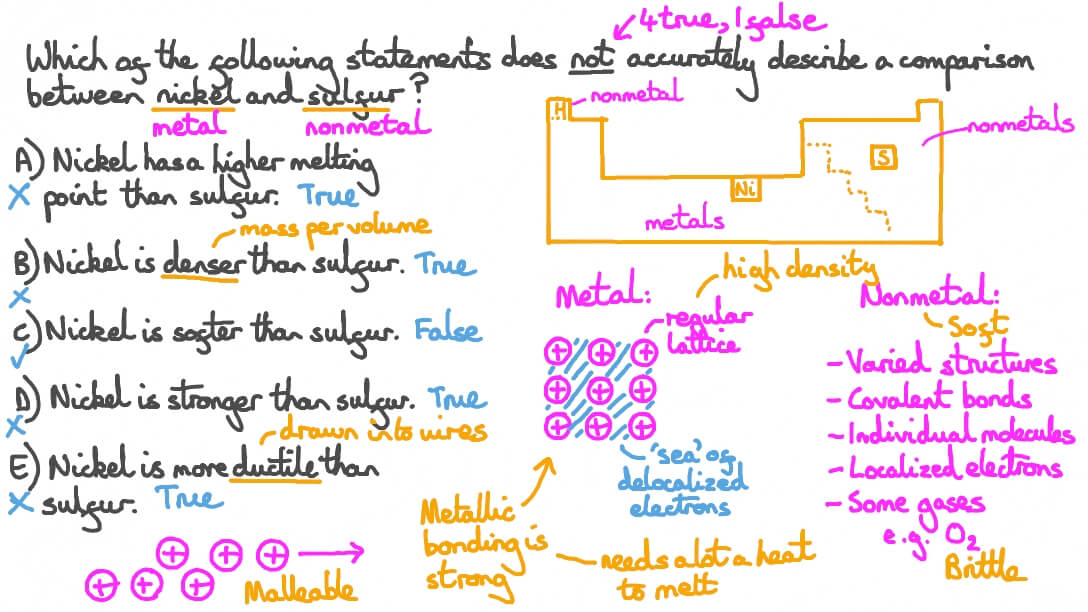 4 true, 1 false
Which of the following statements does not accurately describe a comparison
between nickel and sulfur?
metal nonmetal
H nonmetal
nonmetals
S
Ni
metals
A) Nickel has a higher melting
point than sulfur. True
mass per volume
B) Nickel is denser than sulfur. True
C) Nickel is softer than sulfur. False
D) Nickel is stronger than sulfur. True
drawn into wires
E) Nickel is more ductile than
sulfur. True
Malleable
high density
Metal:
regular
lattice
'sea' of
delocalized
electrons
Metallic
bonding is
strong
needs a lot a heat
to melt
Nonmetal:
Soft
- Varied structures
- Covalent bonds
- Individual molecules
- Localized electrons
- Some gases
e.g. O₂
Brittle